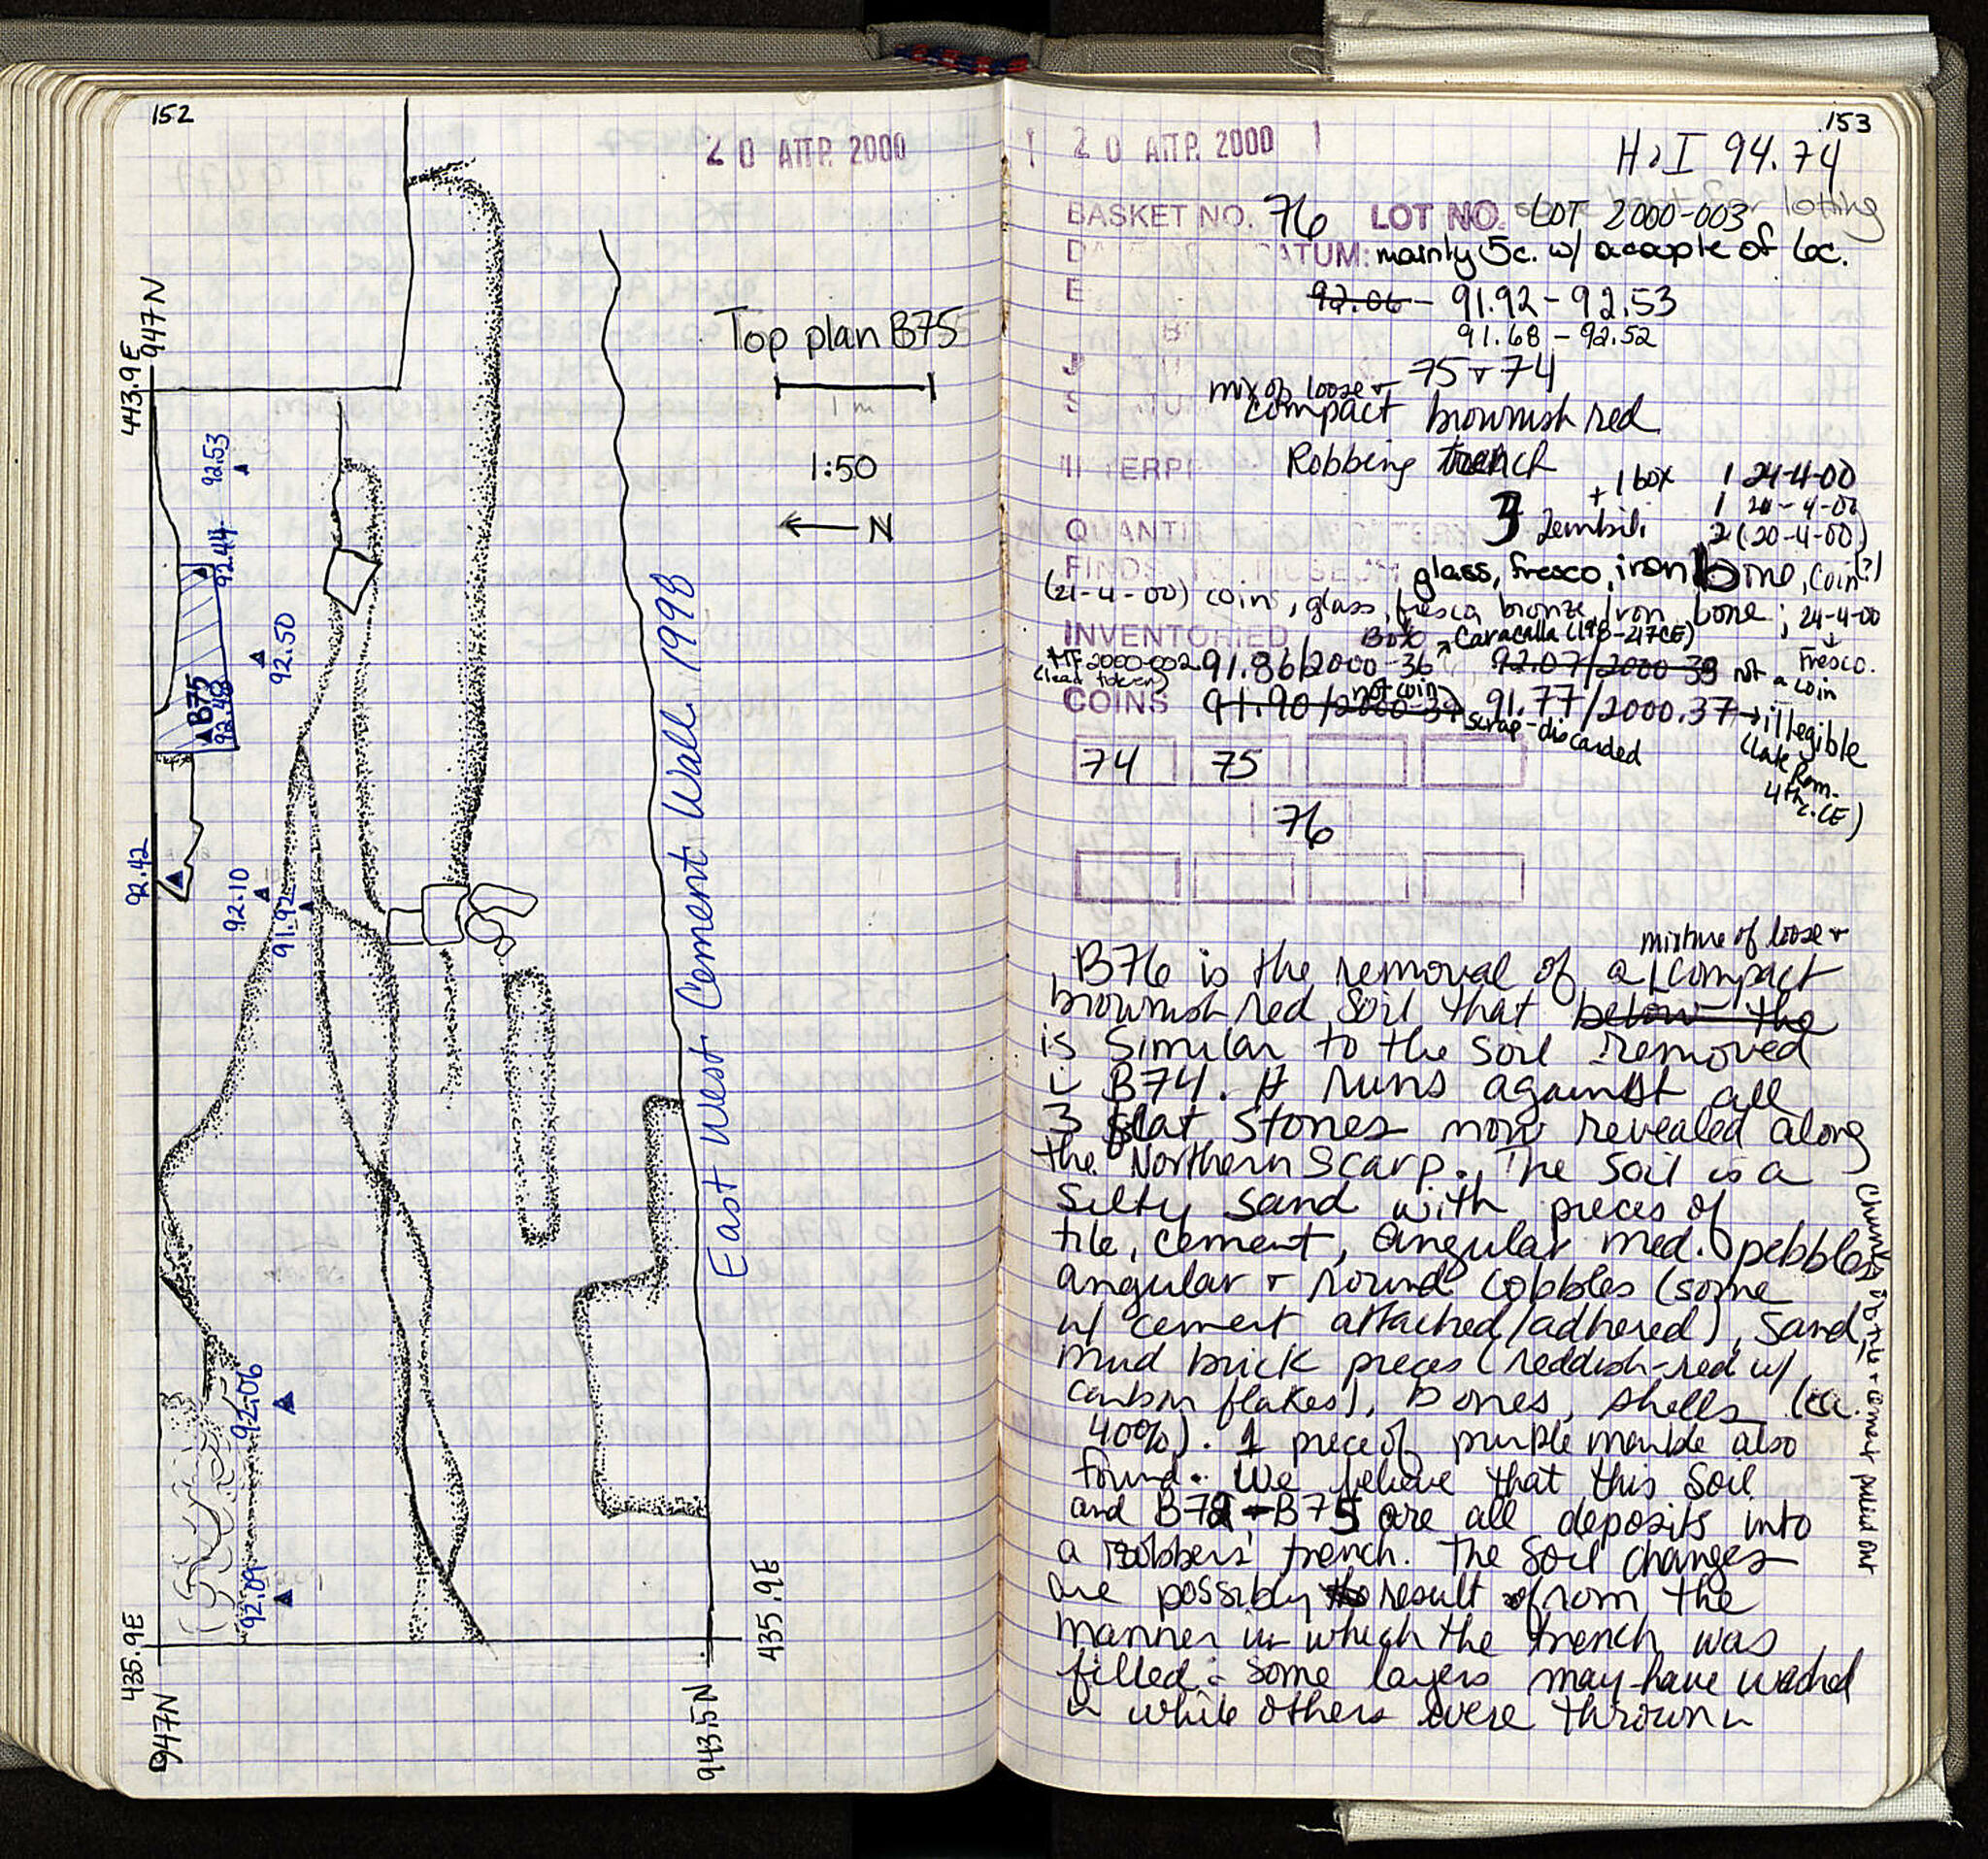 152
2 0 ΑΠΡ. 2000
947N
443.9E
Top plan B75
1 m
1:50
N
92.53
92.44
92.50
B75
92.48
92.42
92.10
91.92
East West Cement Wall 1998
92.06
92.09
435.9E
947N
943.5N
435.9E
153
2 0 ΑΠΡ. 2000
H:I 94.74
BASKET NO. 76 LOT NO. LOT 2000-003
D ATUM: mainly 5c. w/ a couple of 6c.
E 92.06 - 91.92 - 92.53
91.68 - 92.52
75 + 74
mix of loose +
compact brownish red
Robbing trench
+ 1 box 1 24-4-00
3 Zembili
2 (20-4-00)
QUANTI
FINDS TO MUSEUM glass, fresco, iron, bone, coin (?)
(21-4-00) coin, glass, fresco, bronze, iron, bone; 24-4-00
Fresco.
INVENTORIED Caracalla (198-217CE)
MF 2000-002 91.86/2000-36 92.07/2000-38 not a coin
(lead token)
not coin
COINS 91.90/2000-39 91.77/2000.37 → illegible
scrap-discarded
(Late Rom.
4th c. CE)
74 75
76
mixture of loose +
B76 is the removal of a compact
brownish red soil that below the
is similar to the soil removed
in B74. It runs against all
3 flat stones now revealed along
the Northern scarp. The soil is a
silty sand with pieces of
tile, cement, angular med. pebbles,
angular + round cobbles (some
w/ cement attached/adhered), sand,
mud brick pieces (reddish-red w/
carbon flakes), bones, shells (ca.
40%). 1 piece of purple marble also
found. We believe that this soil
and B72-B75 are all deposits into
a robbers' trench. The soil changes
are possibly the result from the
manner in which the trench was
filled: some layers may have washed
in while others were thrown in
Chunks of tile + cement pulled out